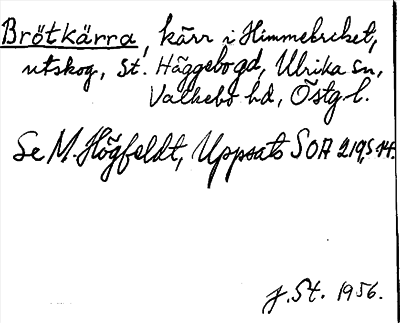 Brötkärra, kärr i Himmelriket,
utskog, St. Häggebo gd, Ulrika sn,
Valkebo hd, Östg. l.
Se M. Högfeldt, Uppsats SOA 219, S 14.
J. St. 1956.